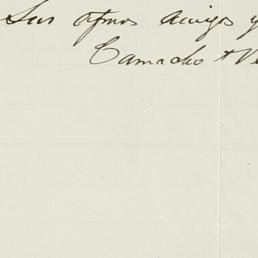 Sus afmos amigos y
Camacho + Ve